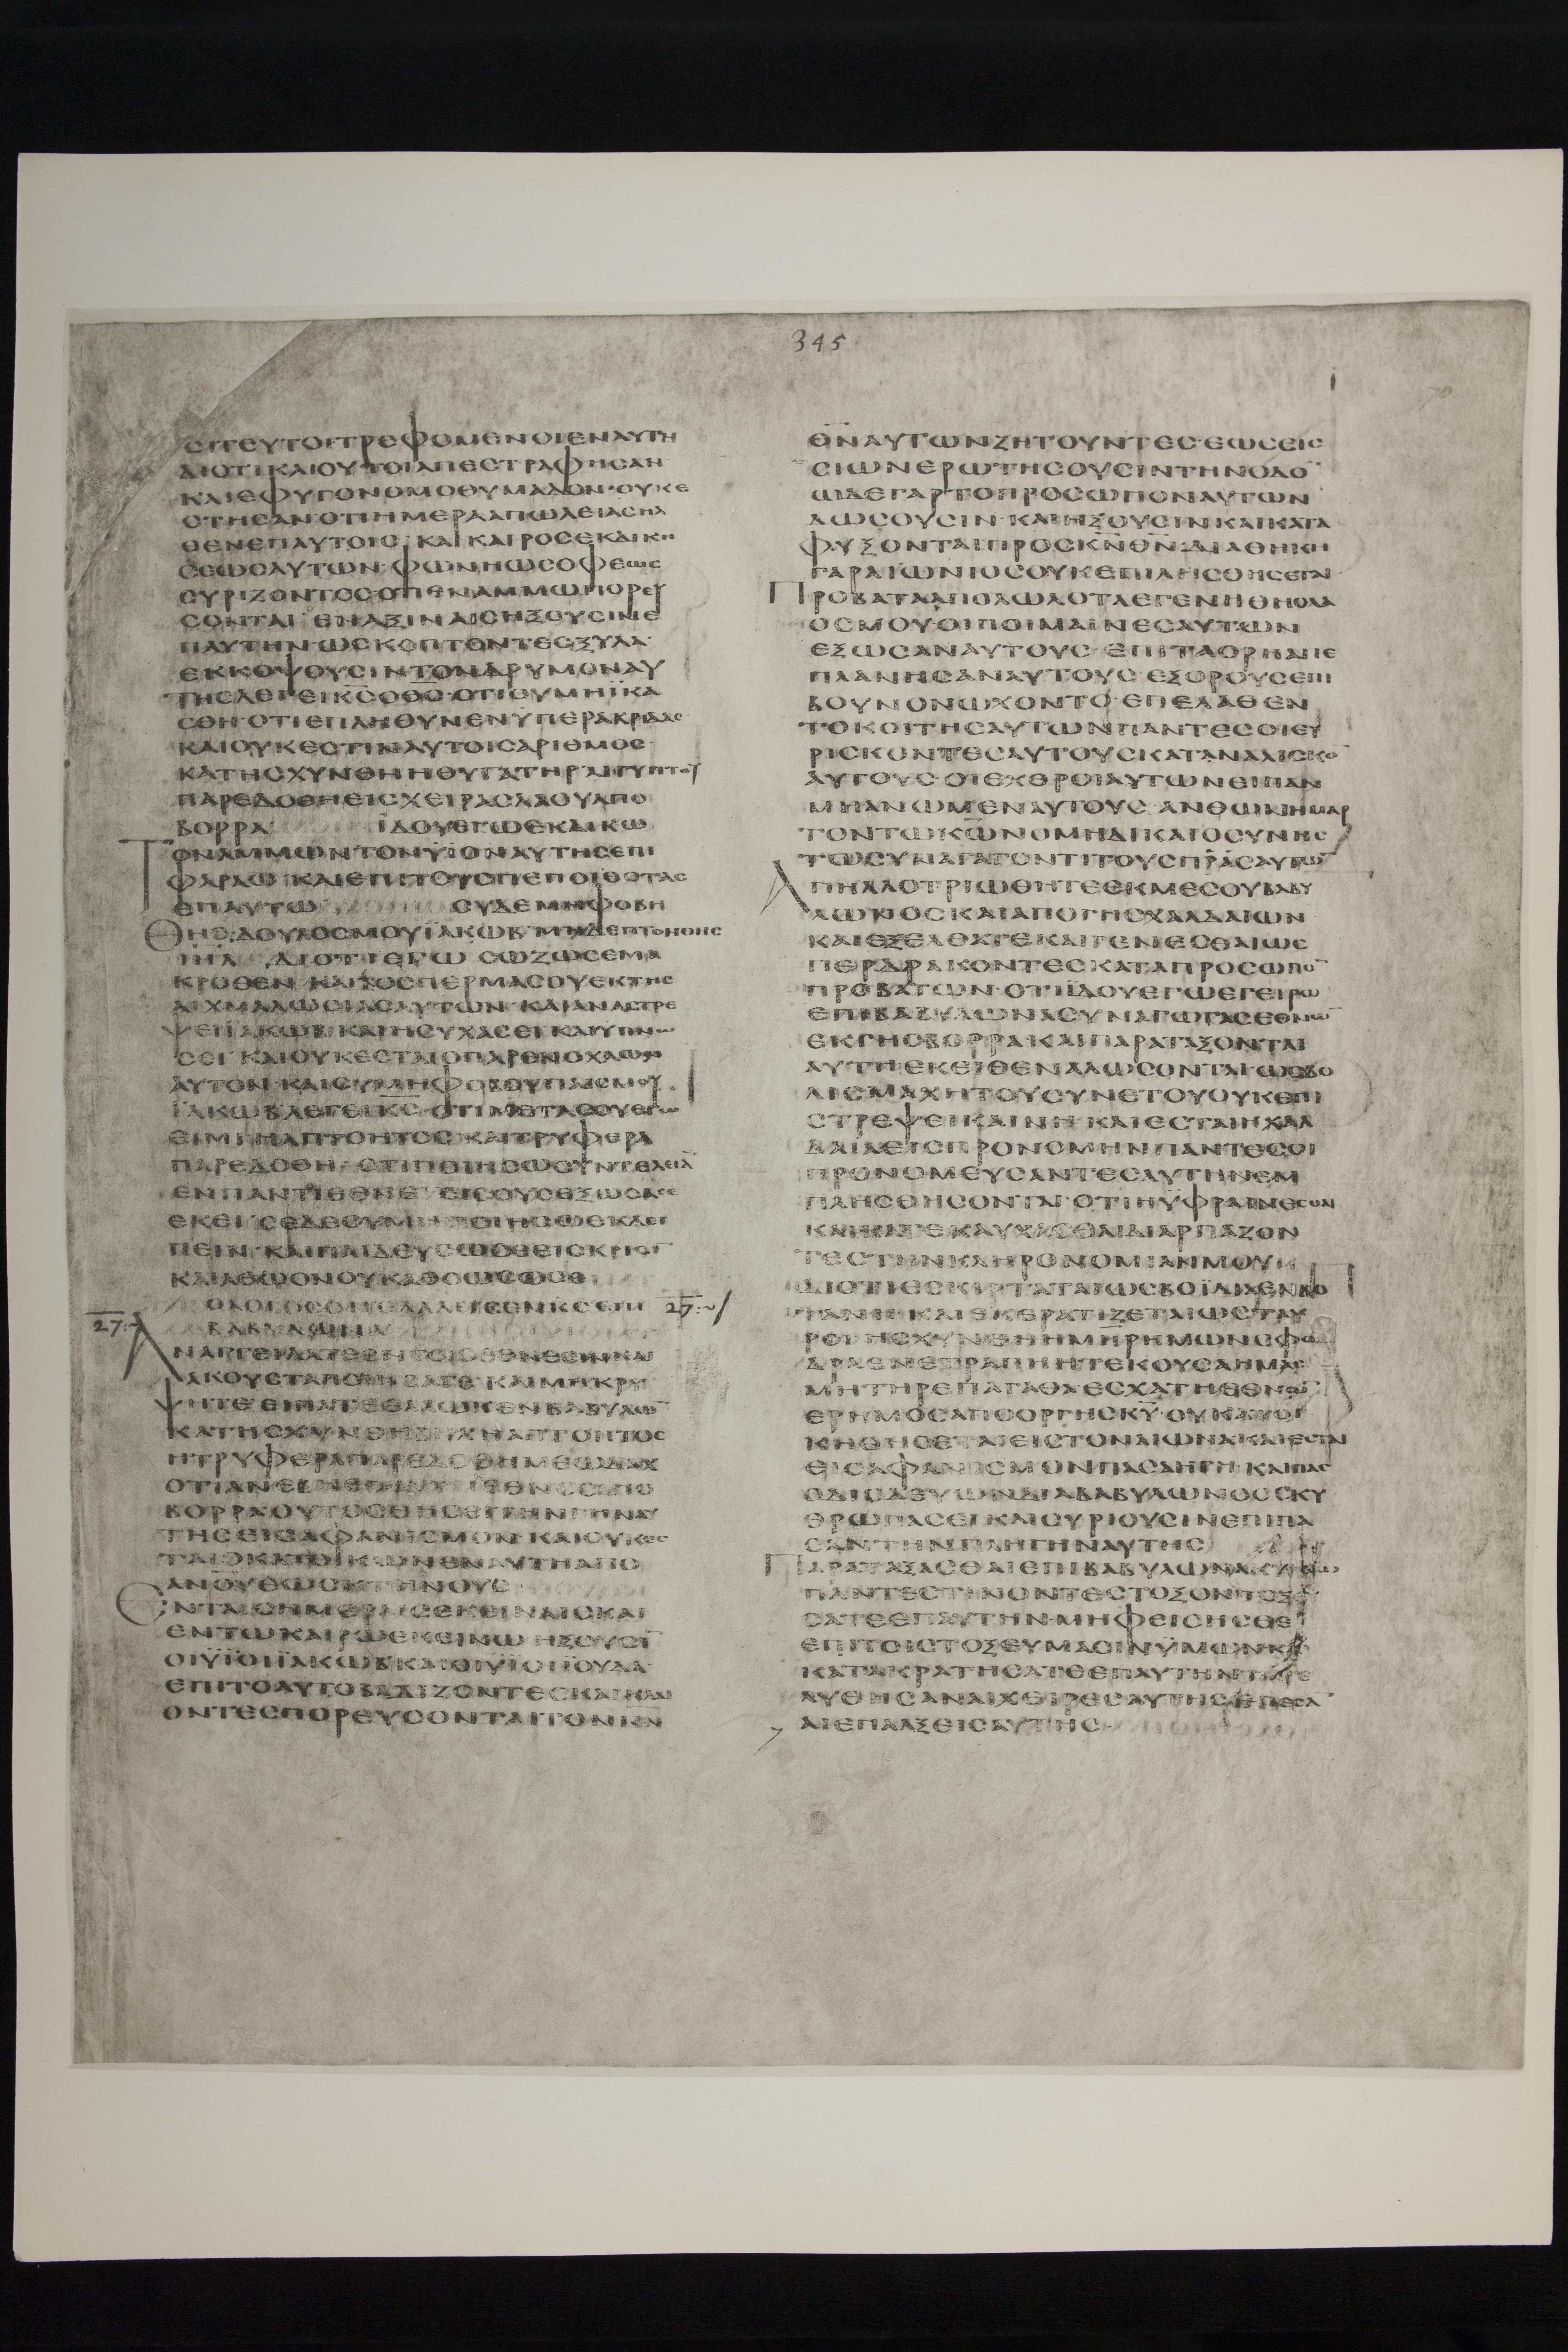 345
ϹΙΤΕΥΤΟΙΤΡΕΦΟΜΕΝΟΙΕΝΑΥΤΗ
ΔΙΟΤΙΚΑΙΟΥΤΟΙΑΠΕϹΤΡΑΦΗϹΑΝ
ΚΑΙΕΦΥΓΟΝΟΜΟΘΥΜΑΔΟΝ·ΟΥΚΕ
ϹΤΗϹΑΝΟΤΙΗΜΕΡΑΑΠΩΛΕΙΑϹΗΛ
ΘΕΝΕΠΑΥΤΟΙϹ·ΚΑΙΚΑΙΡΟϹΕΚΔΙΚΗ
ϹΕΩϹΑΥΤΩΝ·ΦΩΝΗΩϹΟΦΕΩϹ
ϹΥΡΙΖΟΝΤΟϹΟΤΙΕΝΑΜΜΩΠΟΡΕΥ
ϹΟΝΤΑΙ ΕΝΑΞΙΝΑΙϹΗΞΟΥϹΙΝΕ
ΠΑΥΤΗΝΩϹΚΟΠΤΟΝΤΕϹΞΥΛΑ·
ΕΚΚΟΨΟΥϹΙΝΤΟΝΔΡΥΜΟΝΑΥ
ΤΗϹΛΕΓΕΙΚϹΟΘϹ·ΟΤΙΟΥΜΗΪΚΑ
ϹΘΗ·ΟΤΙΕΠΛΗΘΥΝΕΝΫΠΕΡΑΚΡΙΔΑϹ·
ΚΑΙΟΥΚΕϹΤΙΝΑΥΤΟΙϹΑΡΙΘΜΟϹ·
ΚΑΤΗϹΧΥΝΘΗΗΘΥΓΑΤΗΡΑΙΓΥΠΤΟΥ
ΠΑΡΕΔΟΘΗΕΙϹΧΕΙΡΑϹΛΑΟΥΑΠΟ
ΒΟΡΡΑ ΪΔΟΥΕΓΩΕΚΔΙΚΩ
ΤΟΝΑΜΜΩΝΤΟΝΫΙΟΝΑΥΤΗϹΕΠΙ
ΦΑΡΑΩ·ΚΑΙΕΠΙΤΟΥϹΠΕΠΟΙΘΟΤΑϹ
ΕΠΑΥΤΩ ϹΥΔΕΜΗΦΟΒΗ
ΘΗϹΔΟΥΛΟϹΜΟΥΪΑΚΩΒ·ΜΗΔΕΠΤΟΗΘΗϹ
ΙΗΛ ΔΙΟΤΙΕΓΩ ϹΩΖΩϹΕΜΑ
ΚΡΟΘΕΝ·ΚΑΙΤΟϹΠΕΡΜΑϹΟΥΕΚΤΗϹ
ΑΙΧΜΑΛΩϹΙΑϹΑΥΤΩΝ·ΚΑΙΑΝΑϹΤΡΕ
ΨΕΙΪΑΚΩΒ·ΚΑΙΗϹΥΧΑϹΕΙΚΑΙΥΠΝΩ
ϹΕΙ·ΚΑΙΟΥΚΕϹΤΑΙΟΠΑΡΕΝΟΧΛΩΝ
ΑΥΤΟΝ·ΚΑΙϹΥΜΗΦΟΒΟΥΠΑΙϹΜΟΥ
ΪΑΚΩΒΛΕΓΕΙΚϹ·ΟΤΙΜΕΤΑϹΟΥΕΓΩ
ΕΙΜΙΗΑΠΤΟΗΤΟϹΚΑΙΤΡΥΦΕΡΑ
ΠΑΡΕΔΟΘΗ·ΟΤΙΠΟΙΗϹΩϹΥΝΤΕΛΕΙᾹ
ΕΝΠΑΝΤΙΕΘΝΕΙ
ΕΚΕΙ·ϹΕΔΕΟΥΜΗΠΟΙΗϹΩΕΚΛΕΙ
ΠΕΙΝ·ΚΑΙΠΑΙΔΕΥϹΩϹΕΕΙϹΚΡΙΜΑ
ΚΑΙΑΘΩΟΝΟΥΚΑΘΩΩϹΩϹΕ
ΟΛΟΓΟϹΟΝΕΛΑΛΗϹΕΝΚϹΕΠΙ 27
27 ΒΑΒΥΛΩΝΑ
ΑΝΑΓΓΕΙΛΑΤΕΕΝΤΟΙϹΕΘΝΕϹΙΝΚΑΙ
ΑΚΟΥϹΤΑΠΟΙΗϹΑΤΕ·ΚΑΙΜΗΚΡΥ
ΨΗΤΕ·ΕΙΠΑΤΕΕΑΛΩΚΕΝΒΑΒΥΛΩ̄
ΚΑΤΗϹΧΥΝΘΗ ΗΑΠΤΟΗΤΟϹ
ΗΤΡΥΦΕΡΑΠΑΡΕΔΟΘΗΜΕΩΔΑΧ
ΟΤΙΑΝΕΒΗΕΠΑΥΤΗΕΘΝΟϹΑΠΟ
ΒΟΡΡΑΟΥΤΟϹΘΗϹΕΙΤΗΝΓΗΝΑΥ
ΤΗϹΕΙϹΑΦΑΝΙϹΜΟΝ·ΚΑΙΟΥΚΕϹ
ΤΑΙΟΚΑΤΟΙΚΩΝΕΝΑΥΤΗΑΠΟ
ΑΝΟΥΕΩϹΚΤΗΝΟΥϹ
ΕΝΤΑΙϹΗΜΕΡΑΙϹΕΚΕΙΝΑΙϹΚΑΙ
ΕΝΤΩΚΑΙΡΩΕΚΕΙΝΩ·ΗΞΟΥϹῙ
ΟΙΫΙΟΙΪΑΚΩΒΚΑΙΟΙΫΙΟΙΪΟΥΔΑ·
ΕΠΙΤΟΑΥΤΟΒΑΔΙΖΟΝΤΕϹΚΑΙΚΛΑΙ
ΟΝΤΕϹΠΟΡΕΥϹΟΝΤΑΙΤΟΝΚΝ
ΘΝΑΥΤΩΝΖΗΤΟΥΝΤΕϹ·ΕΩϹΕΙϹ
ϹΙΩΝΕΡΩΤΗϹΟΥϹΙΝΤΗΝΟΔΟ̄
ΩΔΕΓΑΡΤΟΠΡΟϹΩΠΟΝΑΥΤΩΝ
ΔΩϹΟΥϹΙΝ·ΚΑΙΗΞΟΥϹΙΝΚΑΙΚΑΤΑ
ΦΥΞΟΝΤΑΙΠΡΟϹΚΝΘΝ·ΔΙΑΘΗΚΗ
ΓΑΡΑΙΩΝΙΟϹΟΥΚΕΠΙΛΗϹΘΗϹΕΤΑΙ
ΠΡΟΒΑΤΑΑΠΟΛΩΛΟΤΑΕΓΕΝΗΘΗΟΛΑ
ΟϹΜΟΥ·ΟΙΠΟΙΜΑΙΝΕϹΑΥΤΩΝ
ΕΞΩϹΑΝΑΥΤΟΥϹ·ΕΠΙΤΑΟΡΗΑΠΕ
ΠΛΑΝΗϹΑΝΑΥΤΟΥϹ·ΕΞΟΡΟΥϹΕΠΙ
ΒΟΥΝΟΝΩΧΟΝΤΟ·ΕΠΕΛΑΘΕΝ
ΤΟΚΟΙΤΗϹΑΥΤΩΝΠΑΝΤΕϹΟΙΕΥ
ΡΙϹΚΟΝΤΕϹΑΥΤΟΥϹΚΑΤΑΝΑΛΙϹΚΟ̄
ΑΥΤΟΥϹ·ΟΙΕΧΘΡΟΙΑΥΤΩΝΕΙΠΑΝ
ΜΗΑΝΩΜΕΝΑΥΤΟΥϹ·ΑΝΘΩΝΗΜΑΡ
ΤΟΝΤΩΚΩΝΟΜΗΔΙΚΑΙΟϹΥΝΗϹ
ΤΩϹΥΝΑΓΑΓΟΝΤΙΤΟΥϹΠΡΑϹΑΥΤΩ̄
ΑΠΗΛΛΟΤΡΙΩΘΗΤΕΕΚΜΕϹΟΥΒΑΒΥ
ΛΩΝΟϹΚΑΙΑΠΟΓΗϹΧΑΛΔΑΙΩΝ
ΚΑΙΕΞΕΛΘΑΤΕΚΑΙΓΕΝΕϹΘΑΙΩϹ
ΠΕΡΔΡΑΚΟΝΤΕϹΚΑΤΑΠΡΟϹΩΠΟ̄
ΠΡΟΒΑΤΩΝ·ΟΤΙΪΔΟΥΕΓΩΕΓΕΙΡΩ
ΕΠΙΒΑΒΥΛΩΝΑϹΥΝΑΓΩΓΑϹΕΘΝΩ̄
ΕΚΓΗϹΒΟΡΡΑΚΑΙΠΑΡΑΤΑΞΟΝΤΑΙ
ΑΥΤΗΕΚΕΙΘΕΝΑΛΩϹΟΝΤΑΙ·ΩϹΒΟ
ΛΙϹΜΑΧΗΤΟΥϹΥΝΕΤΟΥΟΥΚΕΠΙ
ϹΤΡΕΨΕΙΚΑΙΝΗ·ΚΑΙΕϹΤΑΙΗΧΑΛ
ΔΑΙΑΕΙϹΠΡΟΝΟΜΗΝΠΑΝΤΕϹΟΙ
ΠΡΟΝΟΜΕΥϹΑΝΤΕϹΑΥΤΗΝΕΜ
ΠΛΗϹΘΗϹΟΝΤΑΙ·ΟΤΙΗΫΦΡΑΙΝΕϹΘΑΙ
ΚΑΙΚΑΤΕΚΑΥΧΑϹΘΑΙΔΙΑΡΠΑΖΟΝ
ΤΕϹΤΗΝΚΛΗΡΟΝΟΜΙΑΝΜΟΥ
ΔΙΟΤΙΕϹΚΙΡΤΑΤΑΙΩϹΒΟΪΔΙΑΕΝΒΟ
ΤΑΝΗ·ΚΑΙΕΚΕΡΑΤΙΖΕΤΑΙΩϹΤΑΥ
ΡΟΙ·ΗϹΧΥΝΘΗΗΜΗΡΗΜΩΝϹΦΟ
ΔΡΑΕΝΕΤΡΑΠΗΗΤΕΚΟΥϹΑΗΜΑϹ
ΜΗΤΗΡΕΠΑΓΑΘΑΕϹΧΑΤΗΕΘΝΩ̄
ΕΡΗΜΟϹΑΠΟΟΡΓΗϹΚΥ·ΟΥΚΑΤΟΙ
ΚΗΘΗϹΕΤΑΙΕΙϹΤΟΝΑΙΩΝΑΚΑΙΕϹΤΑΙ
ΕΙϹΑΦΑΝΙϹΜΟΝΠΑϹΑΗΓΗ·ΚΑΙΠΑϹ
ΟΔΙΟΔΕΥΩΝΔΙΑΒΑΒΥΛΩΝΟϹϹΚΥ
ΘΡΩΠΑϹΕΙΚΑΙϹΥΡΙΟΥϹΙΝΕΠΙΠΑ
ϹΑΝΤΗΝΠΛΗΓΗΝΑΥΤΗϹ
ΠΑΡΑΤΑΞΑϹΘΑΙΕΠΙΒΑΒΥΛΩΝΑΚΥΚΛΩ
ΠΑΝΤΕϹΤΙΝΟΝΤΕϹΤΟΞΟΝΤΟΞΕΥ
ϹΑΤΕΕΠΑΥΤΗΝ·ΜΗΦΕΙϹΗϹΘΕ
ΕΠΙΤΟΙϹΤΟΞΕΥΜΑϹΙΝΫΜΩΝΚΑΙ
ΚΑΤΑΚΡΑΤΗϹΑΤΕΕΠΑΥΤΗΝΠΑΡΕ
ΛΥΘΗϹΑΝΑΙΧΕΙΡΕϹΑΥΤΗϹΕΠΕϹᾹ
ΑΙΕΠΑΛΞΕΙϹΑΥΤΗϹ·